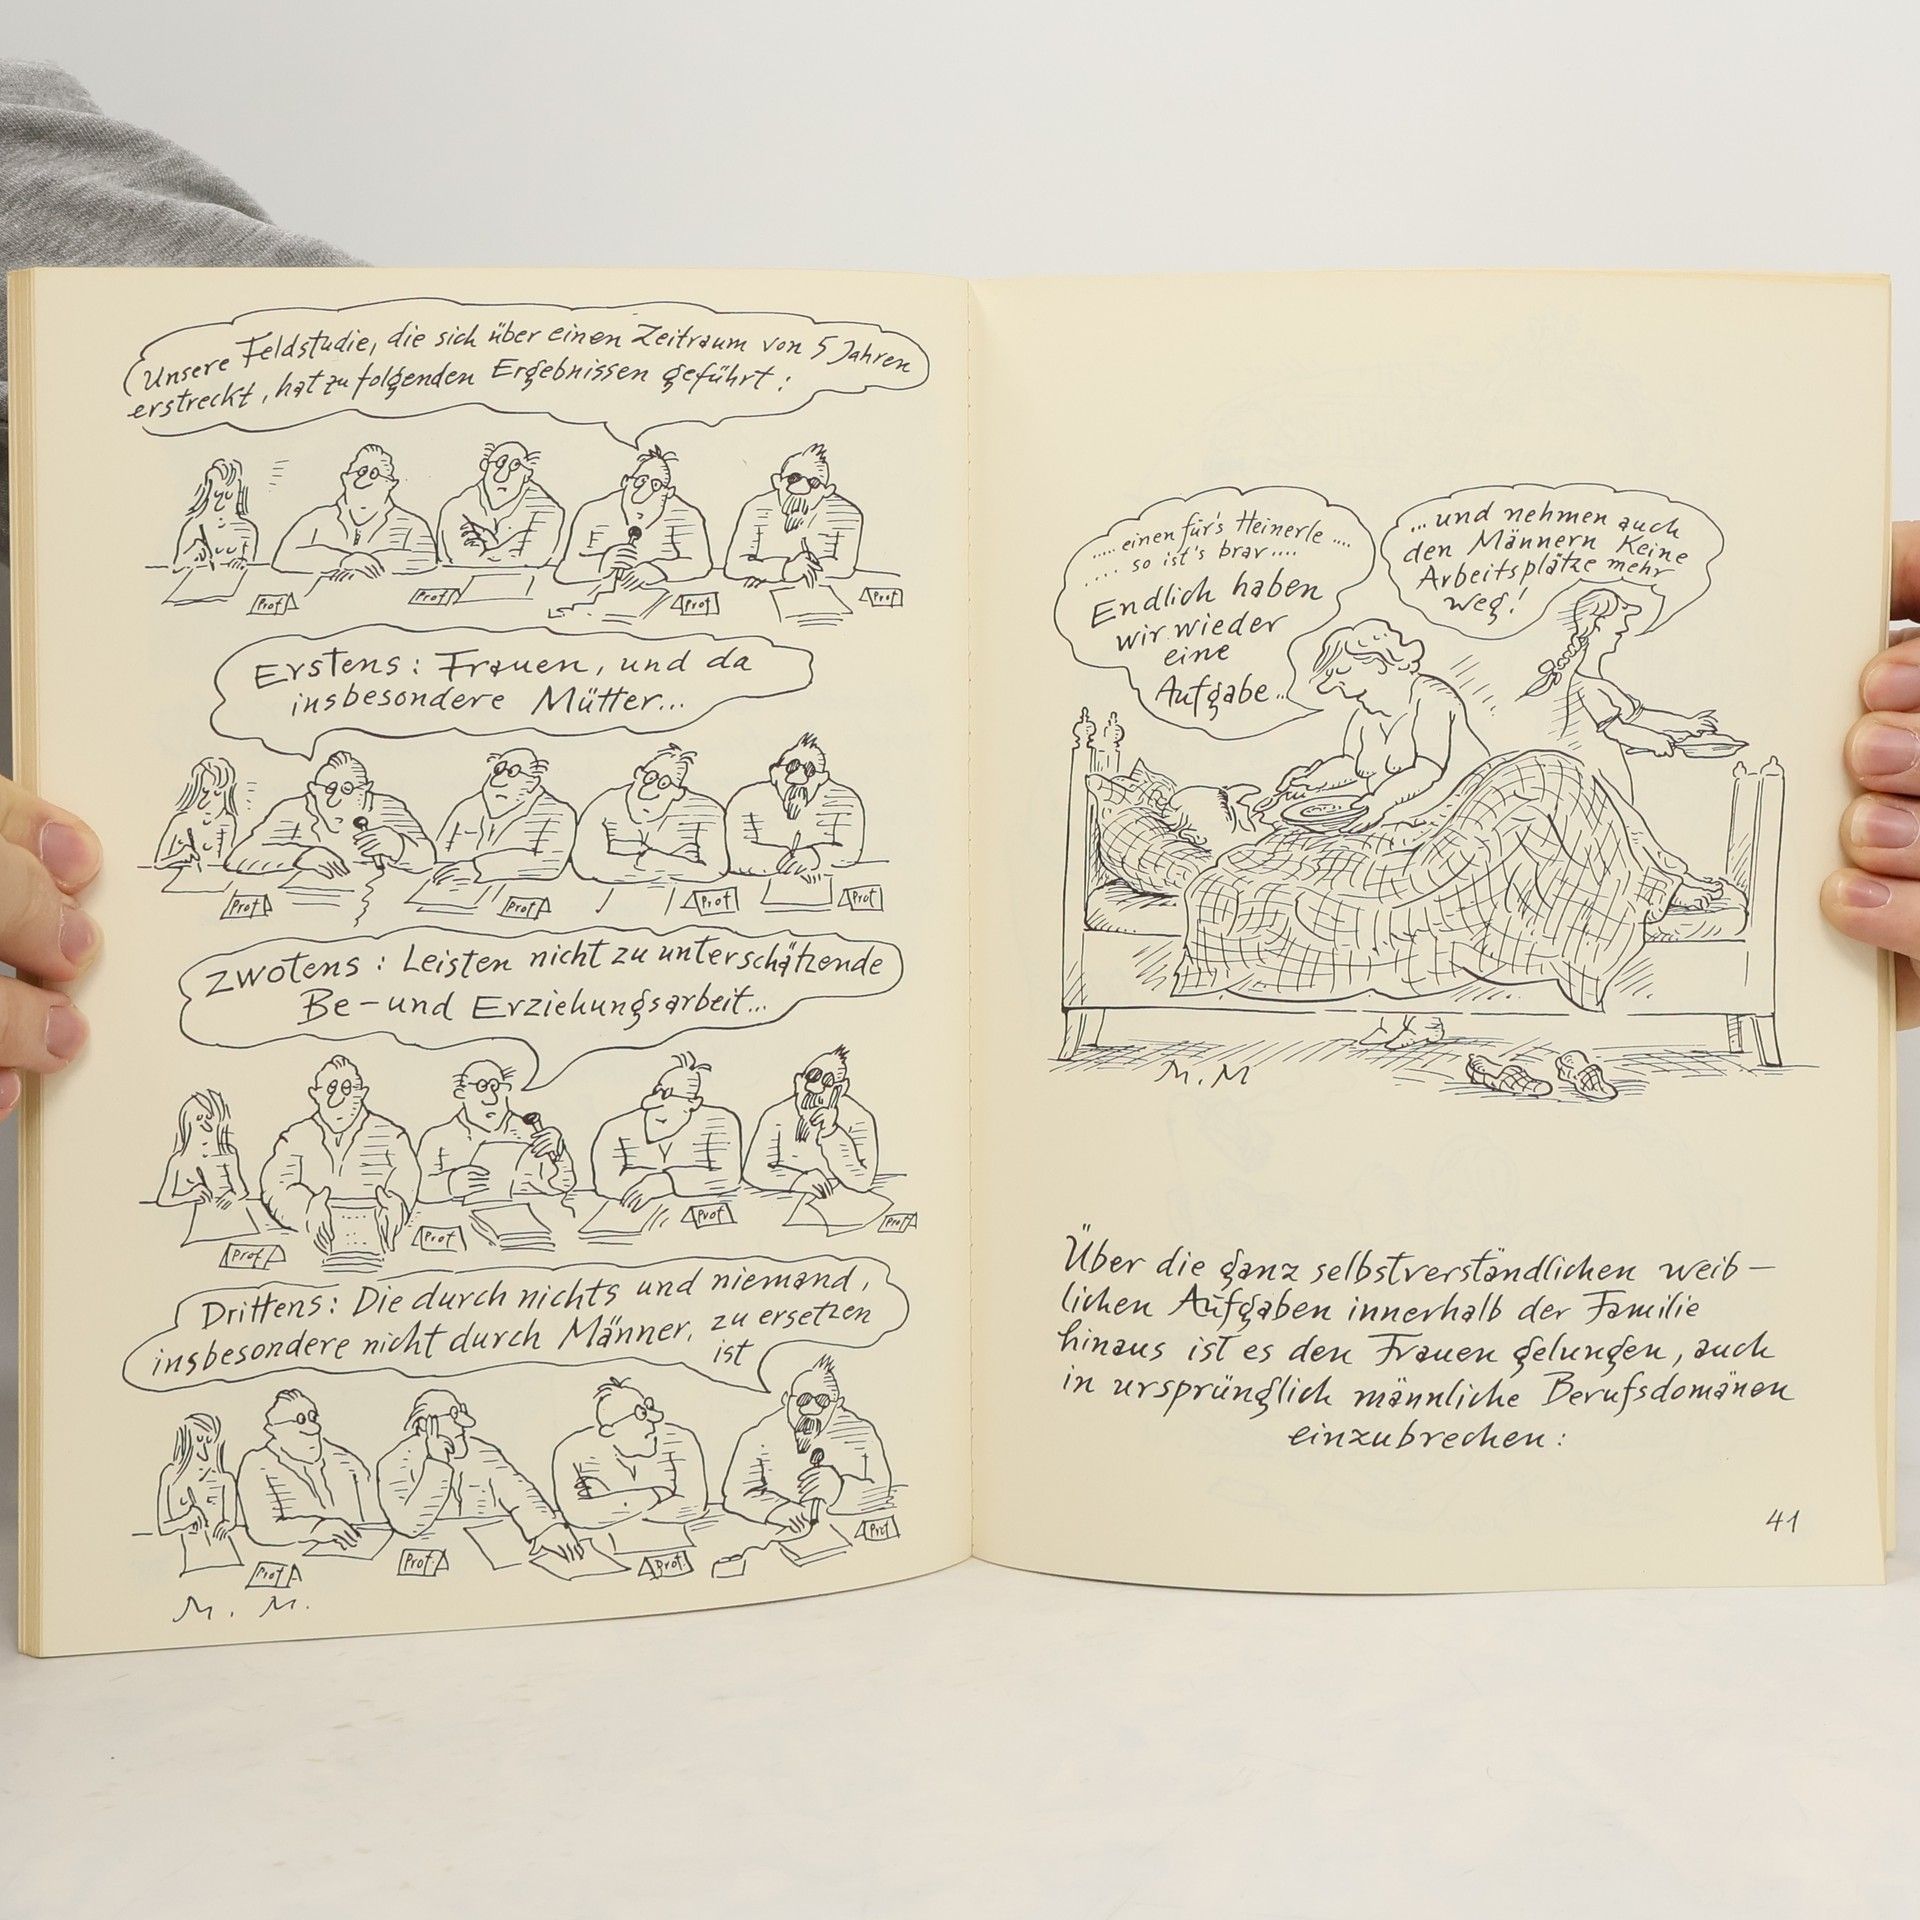 Unsere Feldstudie, die sich über einen Zeitraum von 5 Jahren
erstreckt, hat zu folgenden Ergebnissen geführt:
Prof
Prof
Prof
Prof
Erstens: Frauen, und da
insbesondere Mütter...
Prof
Prof
Prof
Prof
Zwotens: Leisten nicht zu unterschätzende
Be- und Erziehungsarbeit...
Prof.
Prof
Prof
Prof
Drittens: Die durch nichts und niemand,
insbesondere nicht durch Männer, zu ersetzen
ist
Prof
Prof.
Prof.
Prof
M. M.
..... einen für's Heinerle ....
.... so ist's brav....
Endlich haben
wir wieder
eine
Aufgabe..
...und nehmen auch
den Männern keine
Arbeitsplätze mehr
weg!
M. M
Über die ganz selbstverständlichen weib-
lichen Aufgaben innerhalb der Familie
hinaus ist es den Frauen gelungen, auch
in ursprünglich männliche Berufsdomänen
einzubrechen:
41